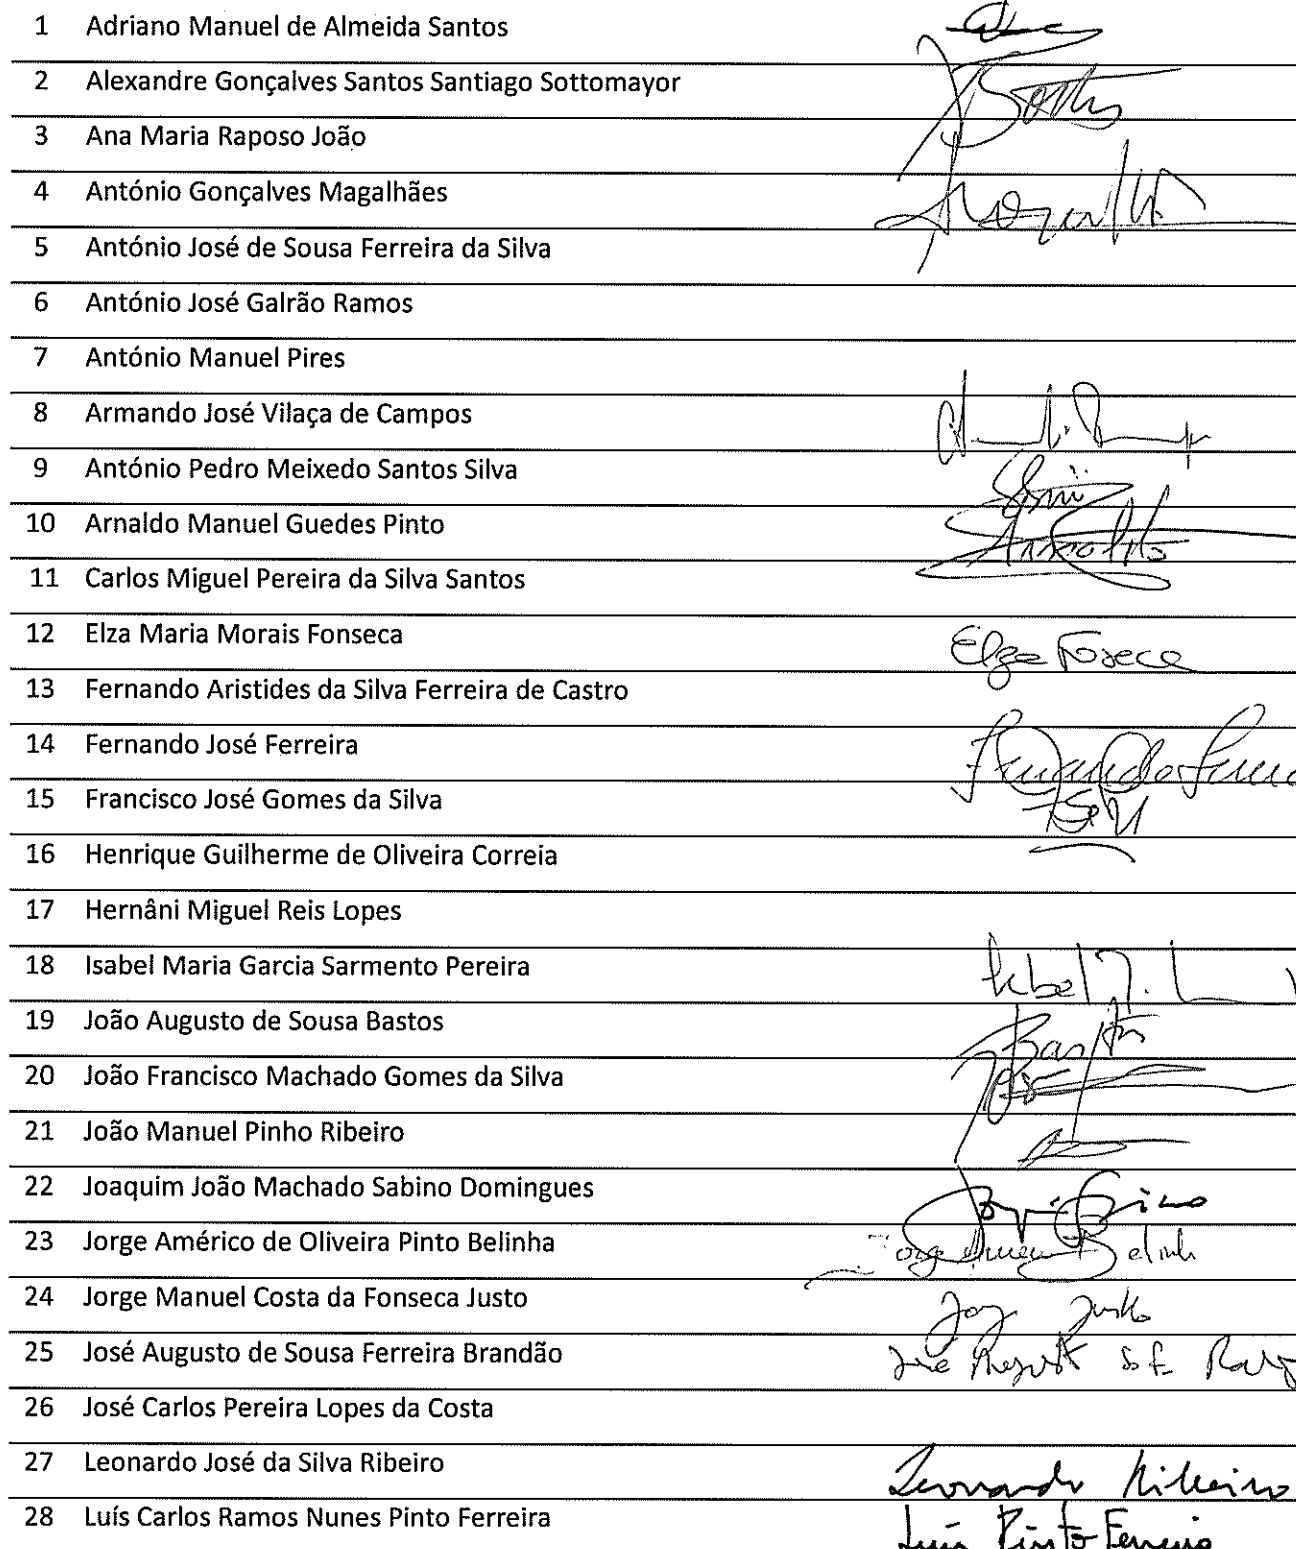 1 Adriano Manuel de Almeida Santos
2 Alexandre Gonçalves Santos Santiago Sottomayor
3 Ana Maria Raposo João
4 António Gonçalves Magalhães
5 António José de Sousa Ferreira da Silva
6 António José Galrão Ramos
7 António Manuel Pires
8 Armando José Vilaça de Campos
9 António Pedro Meixedo Santos Silva
10 Arnaldo Manuel Guedes Pinto
11 Carlos Miguel Pereira da Silva Santos
12 Elza Maria Morais Fonseca Elza Foseca
13 Fernando Aristides da Silva Ferreira de Castro
14 Fernando José Ferreira Fernando
15 Francisco José Gomes da Silva
16 Henrique Guilherme de Oliveira Correia
17 Hernâni Miguel Reis Lopes
18 Isabel Maria Garcia Sarmento Pereira
19 João Augusto de Sousa Bastos
20 João Francisco Machado Gomes da Silva
21 João Manuel Pinho Ribeiro
22 Joaquim João Machado Sabino Domingues
23 Jorge Américo de Oliveira Pinto Belinha Jorge Belinha
24 Jorge Manuel Costa da Fonseca Justo Justo
25 José Augusto de Sousa Ferreira Brandão
26 José Carlos Pereira Lopes da Costa
27 Leonardo José da Silva Ribeiro Leonardo Ribeiro
28 Luís Carlos Ramos Nunes Pinto Ferreira Luís Pinto Ferreira